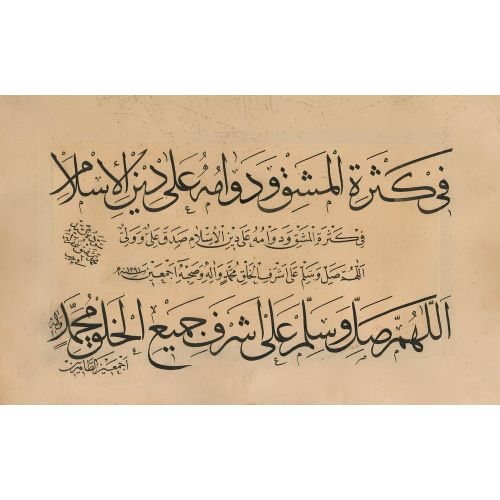 في كثرة المشق ودوامه على دين الإسلام
في كثرة المشق ودوامه على دين الإسلام صدق علي وولي
اللهم صل وسلم على أشرف الخلق محمد وآله وصحبه أجمعين ١٣٩١
اللهم صل وسلم على أشرف جميع الخلق محمد وآله
أجمعين الطاهرين